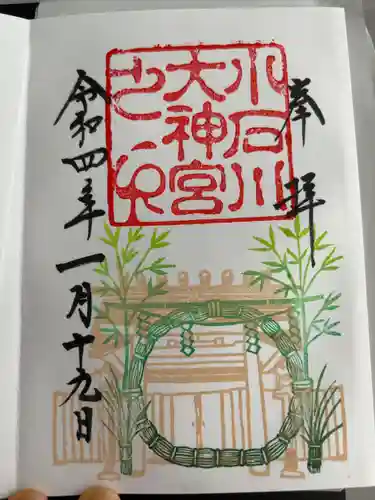 奉拝
小石川
大神宮
之印
令和四年一月十九日